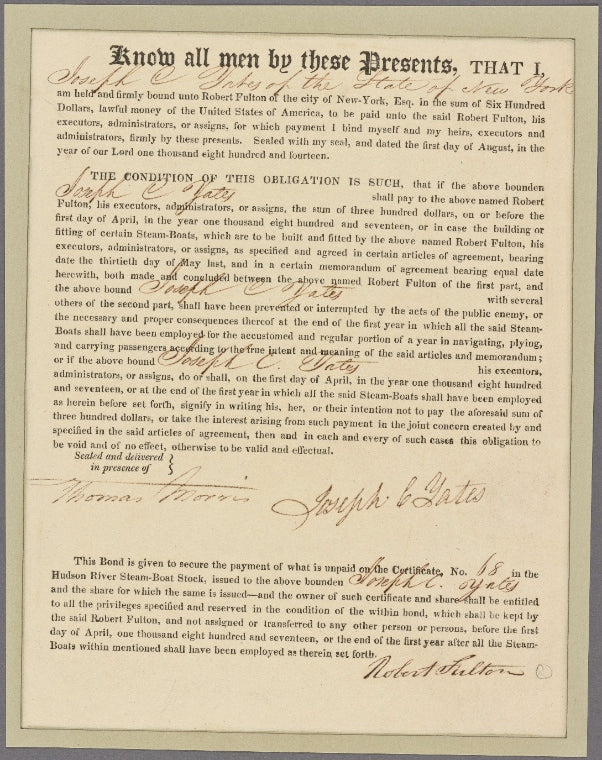 Know all men by these Presents, THAT I,
Joseph C Yates of the State of New York
am held and firmly bound unto Robert Fulton of the city of New-York, Esq. in the sum of Six Hundred
Dollars, lawful money of the United States of America, to be paid unto the said Robert Fulton, his
executors, administrators, or assigns, for which payment I bind myself and my heirs, executors and
administrators, firmly by these presents. Sealed with my seal, and dated the first day of August, in the
year of our Lord one thousand eight hundred and fourteen.
THE CONDITION OF THIS OBLIGATION IS SUCH, that if the above bounden
Joseph C Yates shall pay to the above named Robert
Fulton, his executors, administrators, or assigns, the sum of three hundred dollars, on or before the
first day of April, in the year one thousand eight hundred and seventeen, or in case the building or
fitting of certain Steam-Boats, which are to be built and fitted by the above named Robert Fulton, his
executors, administrators, or assigns, as specified and agreed in certain articles of agreement, bearing
date the thirtieth day of May last, and in a certain memorandum of agreement bearing equal date
herewith, both made and concluded between the above named Robert Fulton of the first part, and
the above bound Joseph C Yates with several
others of the second part, shall have been prevented or interrupted by the acts of the public enemy, or
the necessary and proper consequences thereof at the end of the first year in which all the said Steam-
Boats shall have been employed for the accustomed and regular portion of a year in navigating, plying,
and carrying passengers according to the true intent and meaning of the said articles and memorandum;
or if the above bound Joseph C. Yates his executors,
administrators, or assigns, do or shall, on the first day of April, in the year one thousand eight hundred
and seventeen, or at the end of the first year in which all the said Steam-Boats shall have been employed
as herein before set forth, signify in writing his, her, or their intention not to pay the aforesaid sum of
three hundred dollars, or take the interest arising from such payment in the joint concern created by and
specified in the said articles of agreement, then and in each and every of such cases this obligation to
be void and of no effect, otherwise to be valid and effectual.
Sealed and delivered
in presence of }
Thomas Morris Joseph C Yates
This Bond is given to secure the payment of what is unpaid on the Certificate, No. 68 in the
Hudson River Steam-Boat Stock, issued to the above bounden Joseph C. Yates
and the share for which the same is issued—and the owner of such certificate and share shall be entitled
to all the privileges specified and reserved in the condition of the within bond, which shall be kept by
the said Robert Fulton, and not assigned or transferred to any other person or persons, before the first
day of April, one thousand eight hundred and seventeen, or the end of the first year after all the Steam-
Boats within mentioned shall have been employed as therein set forth.
Robert Fulton